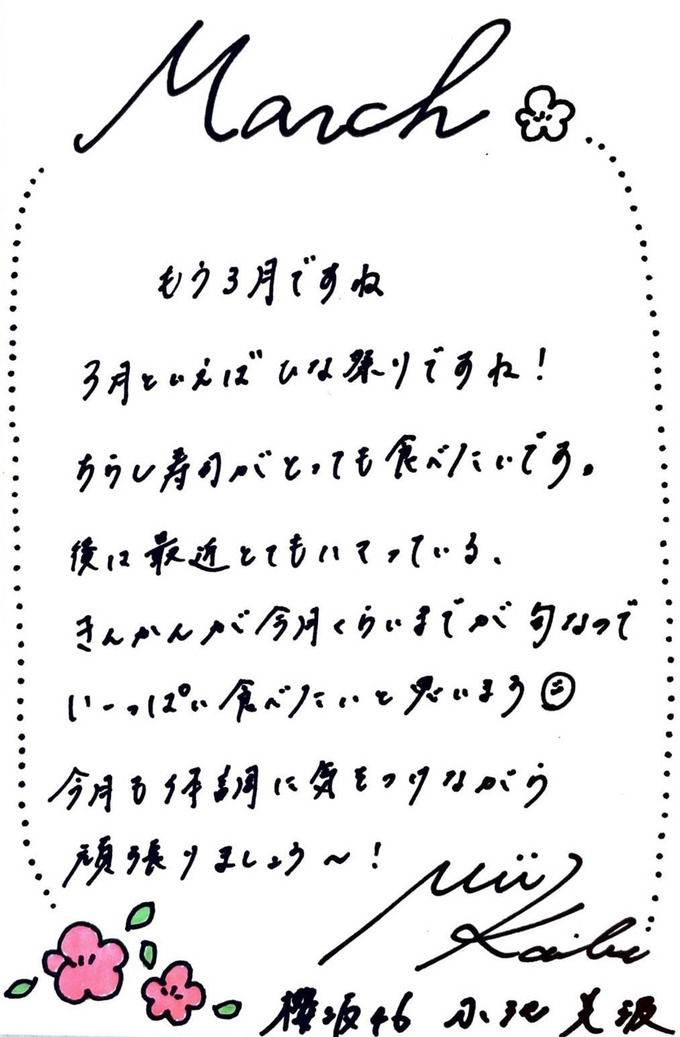 March
もう3月ですね
3月といえば ひな祭りですね!
ちらし寿司がとっても食べたいです。
後は最近とてもハマっている、
きんかんが今月くらいまでが旬なので
いーっぱい食べたいと思います
今月も体調に気をつけながら
頑張りましょう〜!
Mii
櫻坂46 小池美波